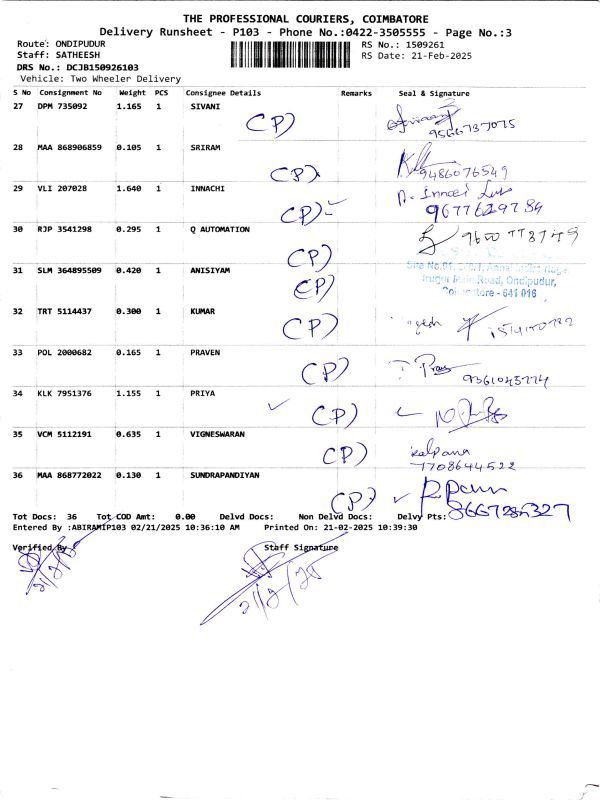 THE PROFESSIONAL COURIERS, COIMBATORE
Delivery Runsheet - P103 - Phone No.:0422-3505555 - Page No.:3
Route: ONDIPUDUR RS No.: 1509261
Staff: SATHEESH RS Date: 21-Feb-2025
DRS No.: DCJB150926103
Vehicle: Two Wheeler Delivery
S No Consignment No Weight PCS Consignee Details Remarks Seal & Signature
27 DPM 735092 1.165 1 SIVANI
(P) 9566737075
28 MAA 868906859 0.105 1 SRIRAM
(P) 9486076549
29 VLI 207028 1.640 1 INNACHI
(P) 9677629784
30 RJP 3541298 0.295 1 Q AUTOMATION
(P) 9600778749
31 SLM 364895509 0.420 1 ANISIYAM
(P) Road, Ondipudur,
641 016
32 TRT 5114437 0.300 1 KUMAR
(P)
33 POL 2000682 0.165 1 PRAVEN
(P) 9361045774
34 KLK 7951376 1.155 1 PRIYA
(P)
35 VCM 5112191 0.635 1 VIGNESWARAN
(P) kalpana
7708644522
36 MAA 868772022 0.130 1 SUNDRAPANDIYAN
(P)
Tot Docs: 36 Tot COD Amt: 0.00 Delvd Docs: Non Delvd Docs: Delvy Pts:
8667286327
Entered By :ABIRAMIP103 02/21/2025 10:36:10 AM Printed On: 21-02-2025 10:39:30
Verified By Staff Signature
21/2/25 21/2/25